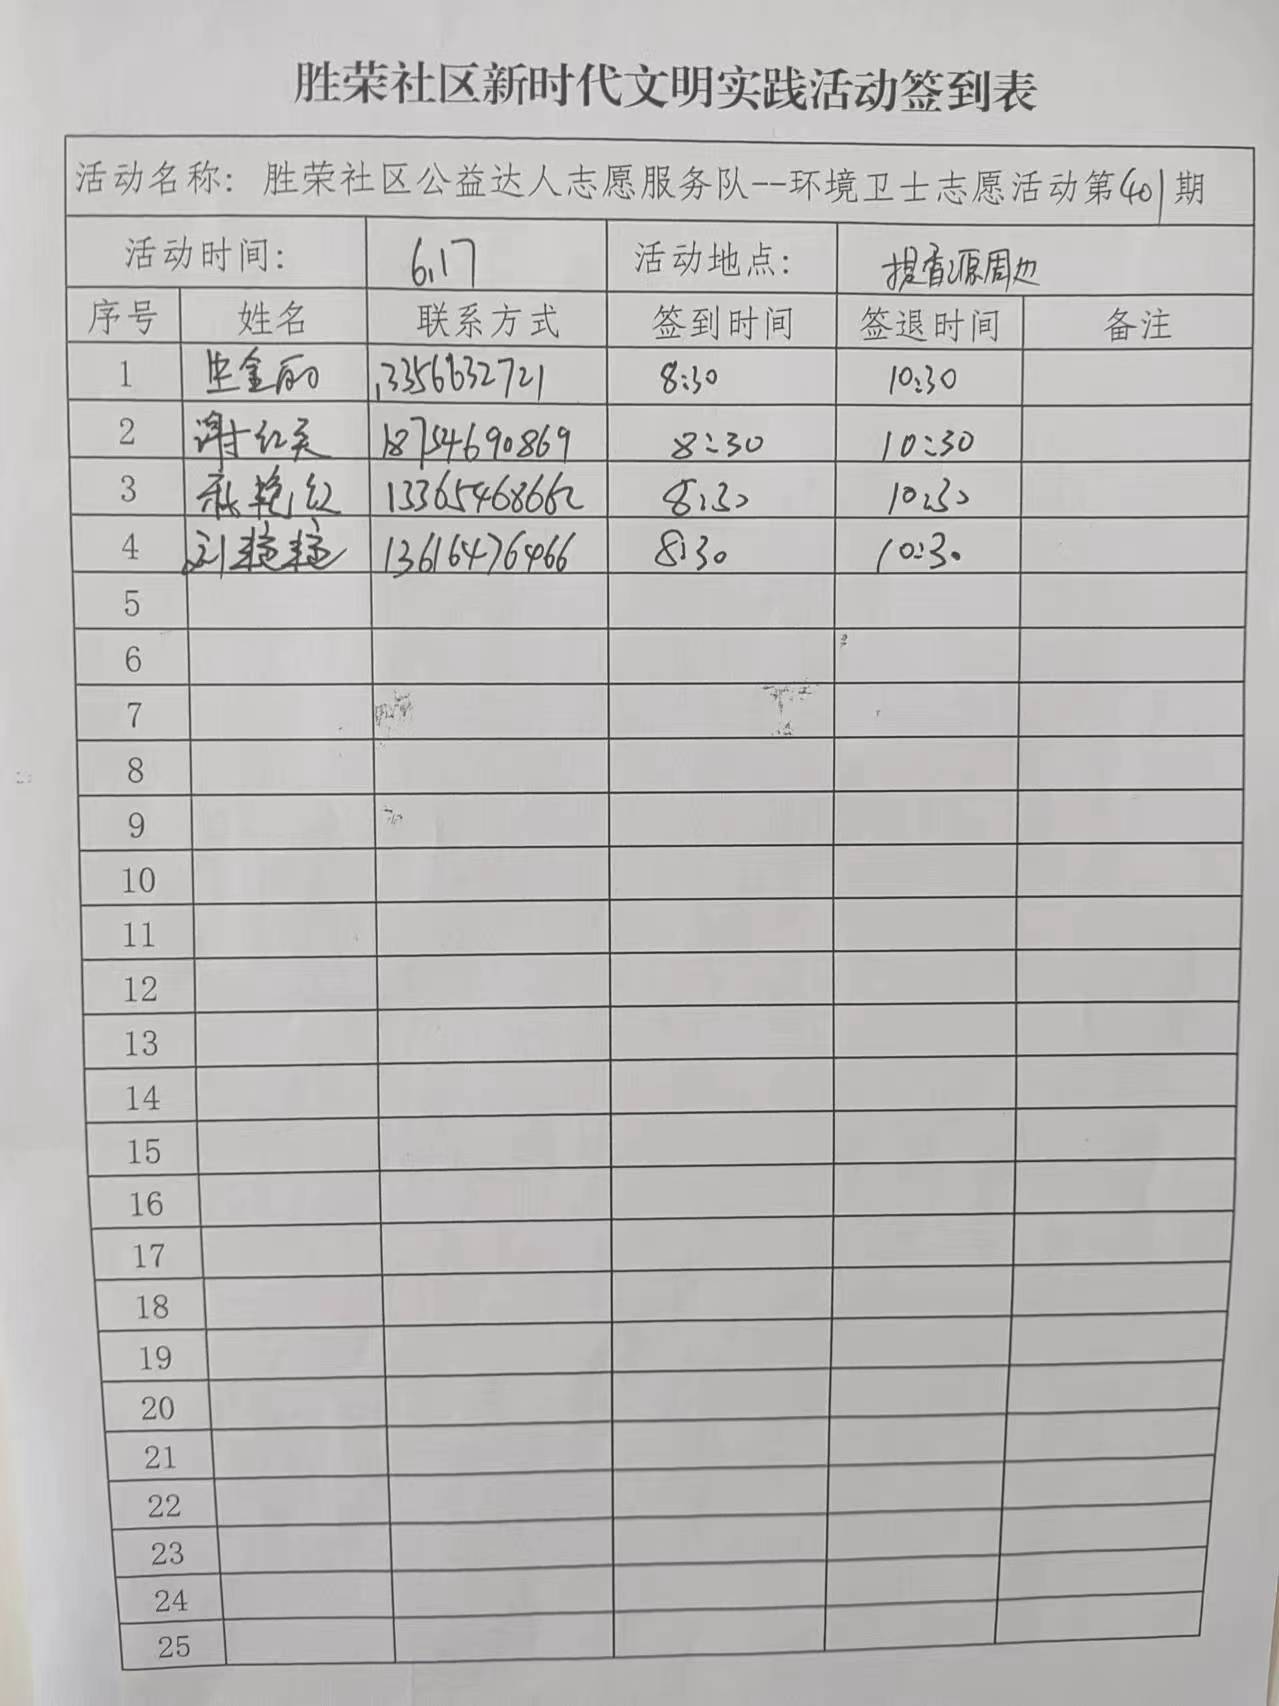 胜荣社区新时代文明实践活动签到表
活动名称：胜荣社区公益达人志愿服务队--环境卫士志愿活动第401期
活动时间： 6.17 活动地点： 提香源周边
序号 姓名 联系方式 签到时间 签退时间 备注
1 金丽 13356632721 8:30 10:30
2 谢红英 18754690869 8:30 10:30
3 艳红 13365468662 8:30 10:30
4 刘 13616476466 8:30 10:30
5
6
7
8
9
10
11
12
13
14
15
16
17
18
19
20
21
22
23
24
25